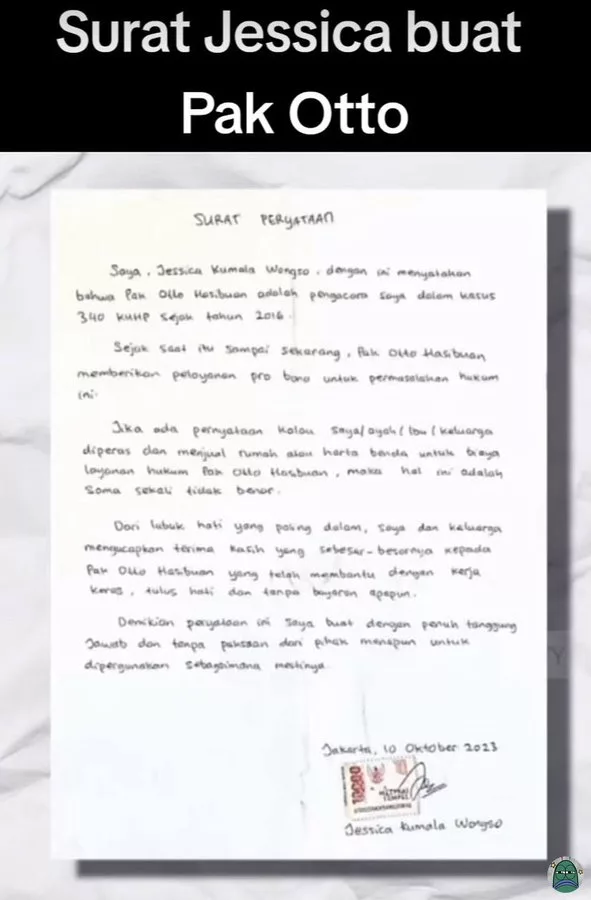 Surat Jessica buat
Pak Otto
SURAT PERYATAAN
Saya, Jessica Kumala Wongso, dengan ini menyatakan
bahwa Pak Otto Hasibuan adalah pengacara saya dalam kasus
340 KUHP sejak tahun 2016.
Sejak saat itu sampai sekarang, Pak Otto Hasibuan
memberikan pelayanan pro bono untuk permasalahan hukum
ini.
Jika ada pernyataan kalau saya/ayah/Ibu/keluarga
diperas dan menjual rumah atau harta benda untuk biaya
layanan hukum Pak Otto Hasibuan, maka hal ini adalah
sama sekali tidak benar.
Dari lubuk hati yang paling dalam, saya dan keluarga
mengucapkan terima kasih yang sebesar-besarnya kepada
Pak Otto Hasibuan yang telah membantu dengan kerja
keras, tulus hati dan tanpa bayaran apapun.
Demikian peryataan ini saya buat dengan penuh tanggung
Jawab dan tanpa paksaan dari pihak manapun untuk
dipergunakan sebagaimana mestinya.
Jakarta, 10 Oktober 2023
10000
METERAI
TEMPEL
Jessica Kumala Wongso